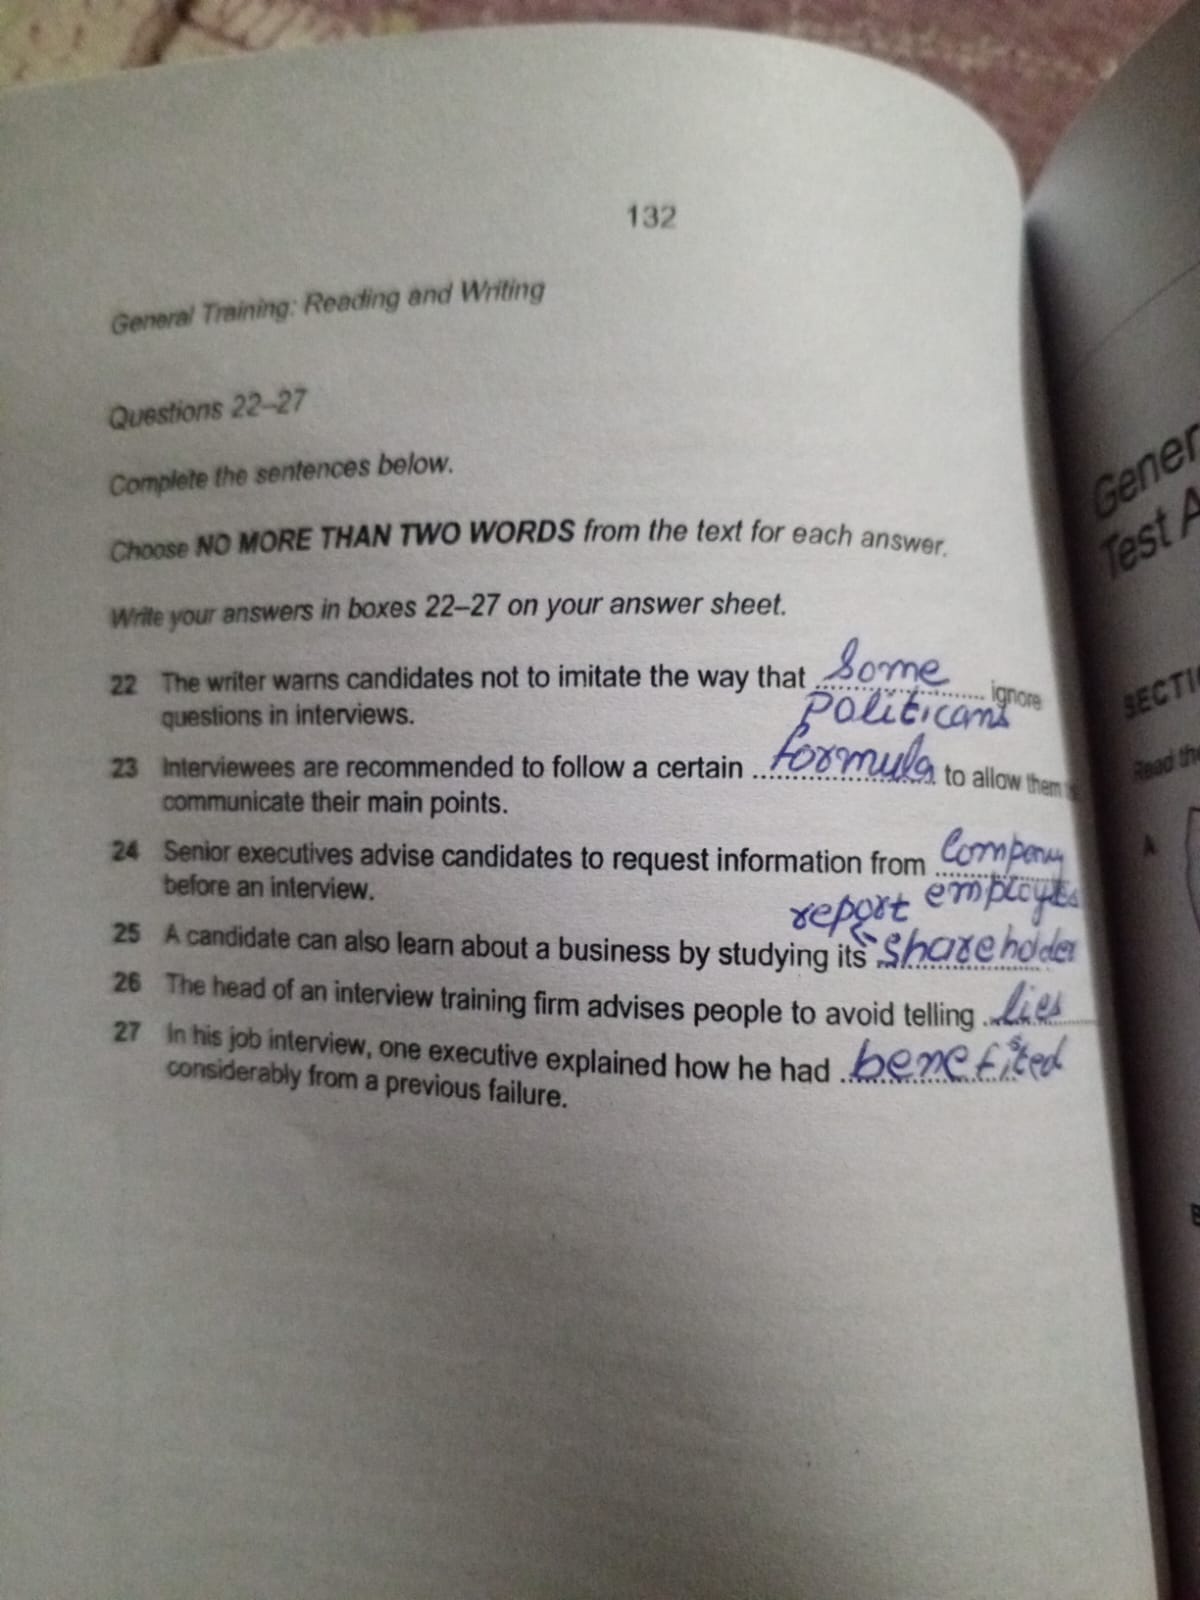 132
General Training: Reading and Writing
Questions 22–27
Complete the sentences below.
Choose NO MORE THAN TWO WORDS from the text for each answer.
Write your answers in boxes 22–27 on your answer sheet.
22 The writer warns candidates not to imitate the way that Some ignore
Politicans
questions in interviews.
23 Interviewees are recommended to follow a certain formula to allow them
communicate their main points.
24 Senior executives advise candidates to request information from Company
employees
before an interview.
report
25 A candidate can also learn about a business by studying its Shareholder
26 The head of an interview training firm advises people to avoid telling lies
27 In his job interview, one executive explained how he had benefited
considerably from a previous failure.
Gener
Test A
SECTI
Read the
A